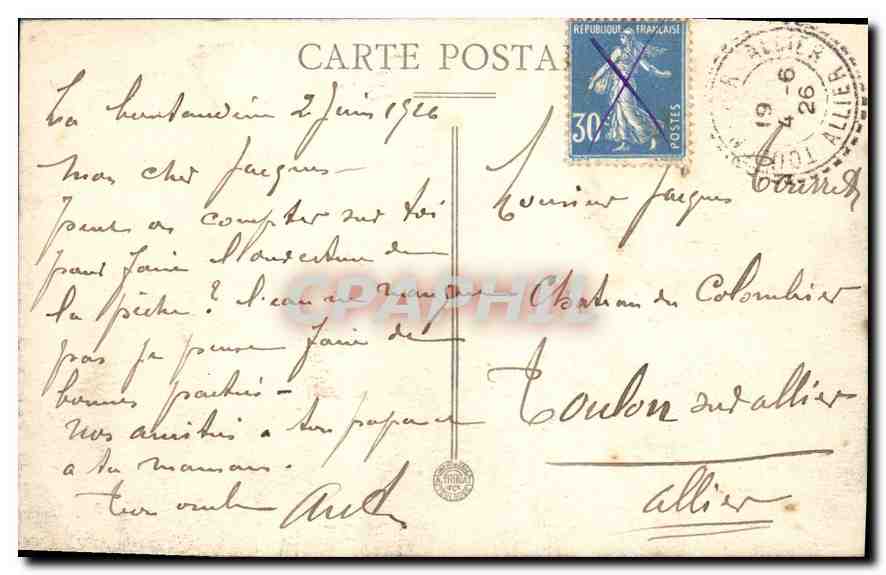 CARTE POSTA
RÉPUBLIQUE FRANÇAISE
30
POSTES
ALLIER
19 -6
4 26
ALLIER
La 2 Juin 1926
Mon cher Jacques
peut on compter sur toi
pour faire l'ouverture de
la pêche? l'eau ne manque
pas je pense faire de
bonnes parties
Nos amitiés a ton papa et
a ta maman.
Ton oncle
Monsieur Jacques
Chateau du Colombier
Toulon sur allier
allier
CPAPHIL